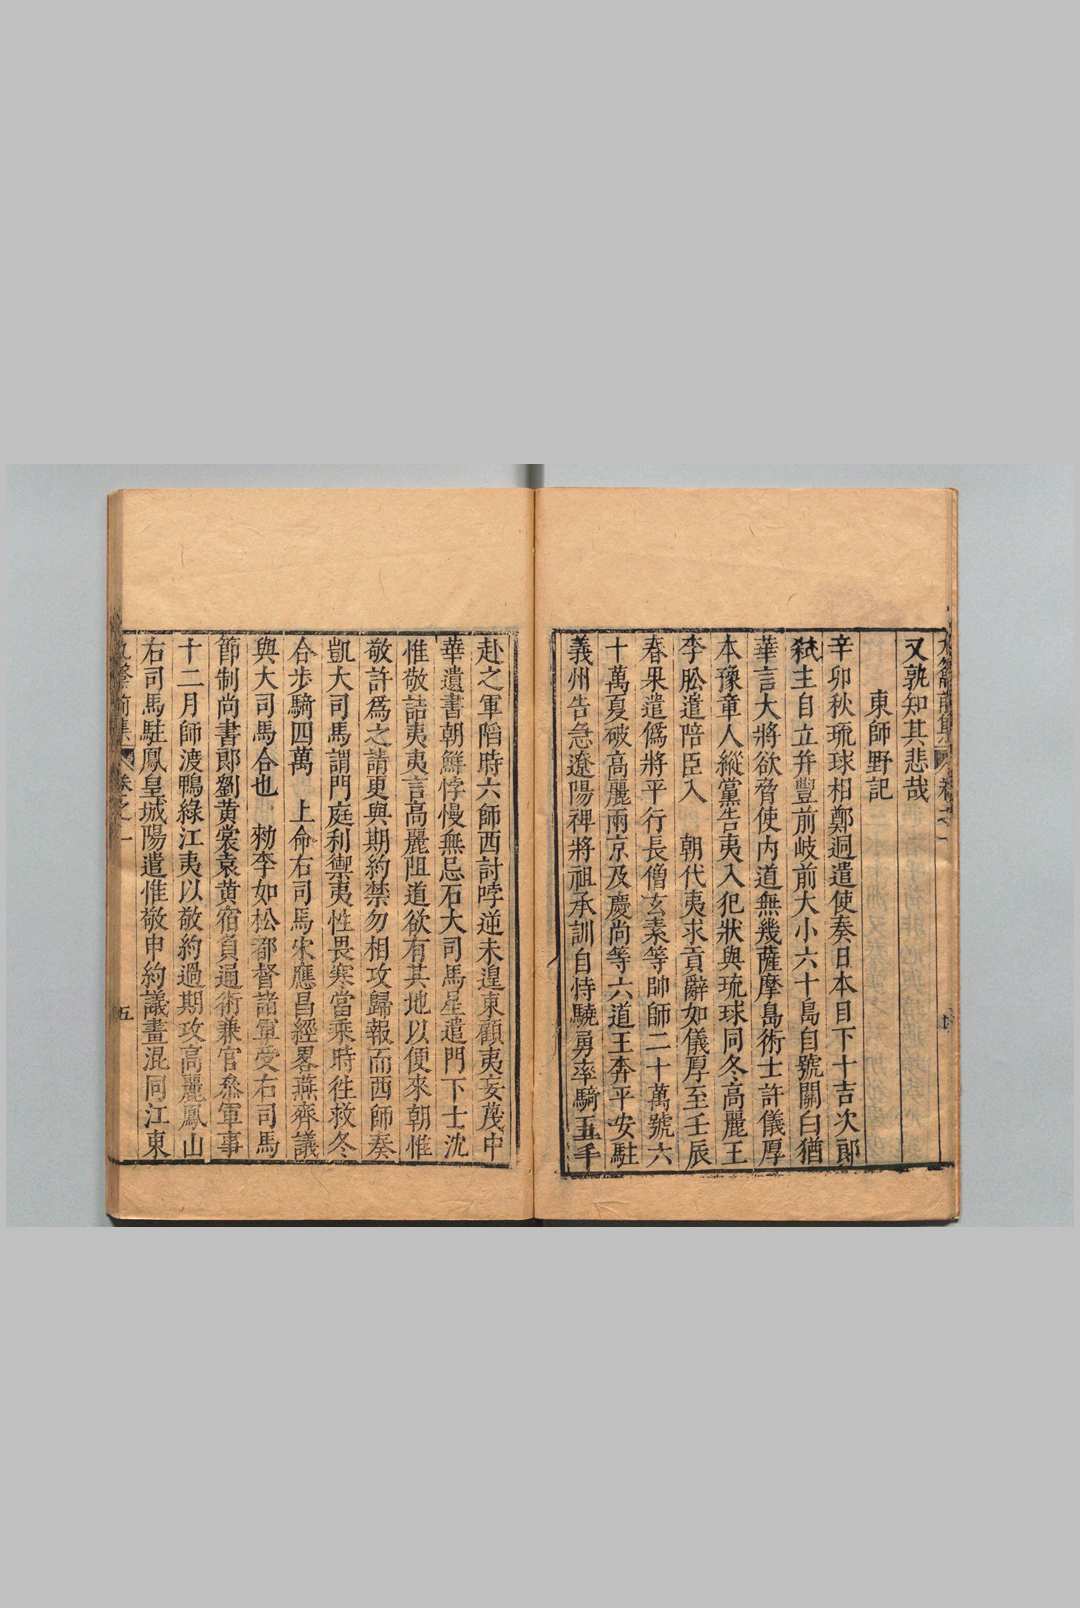 又孰知其悲哉
東師野記
辛卯秋琉球相鄭迵遣使奏日本目下十吉次郎
弒主自立并豐前岐前大小六十島自號關白猶
華言大將欲脅使內道無幾薩摩島術士許儀厚
本豫章人縱黨告夷入犯狀與琉球同冬高麗王
李昖遣陪臣入　朝代夷求貢辭如儀厚至壬辰
春果遣僞將平行長僧玄素等帥師二十萬號六
十萬夏破高麗兩京及慶尚等六道王奔平安駐
義州告急遼陽裨將祖承訓自恃驍勇率騎五千
赴之軍䧟時六師西討哱逆未遑東顧夷妄蔑中
華遺書朝鮮悖慢無忌石大司馬星遣門下士沈
惟敬詰夷夷言高麗阻道欲有其地以便來朝惟
敬許爲之請更與期約禁勿相攻歸報而西師奏
凱大司馬謂門庭利禦夷性畏寒當乘時徃救冬
合步騎四萬　上命右司馬宋應昌經畧燕齊議
與大司馬合也　勑李如松都督諸軍受右司馬
節制尚書郎劉黃裳袁黃宿負通術兼官叅軍事
十二月師渡鴨綠江夷以敬約過期攻高麗鳳山
右司馬駐鳳皇城陽遣惟敬申約議畫混同江東
九籥前集　卷之一　五